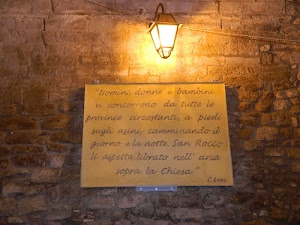 "Uomini, donne e bambini
vi concorrono da tutte le
province circostanti, a piedi
sugli asini, camminando il
giorno e la notte. San Rocco
li aspetta librato nell' aria
sopra la Chiesa."
C. Levi